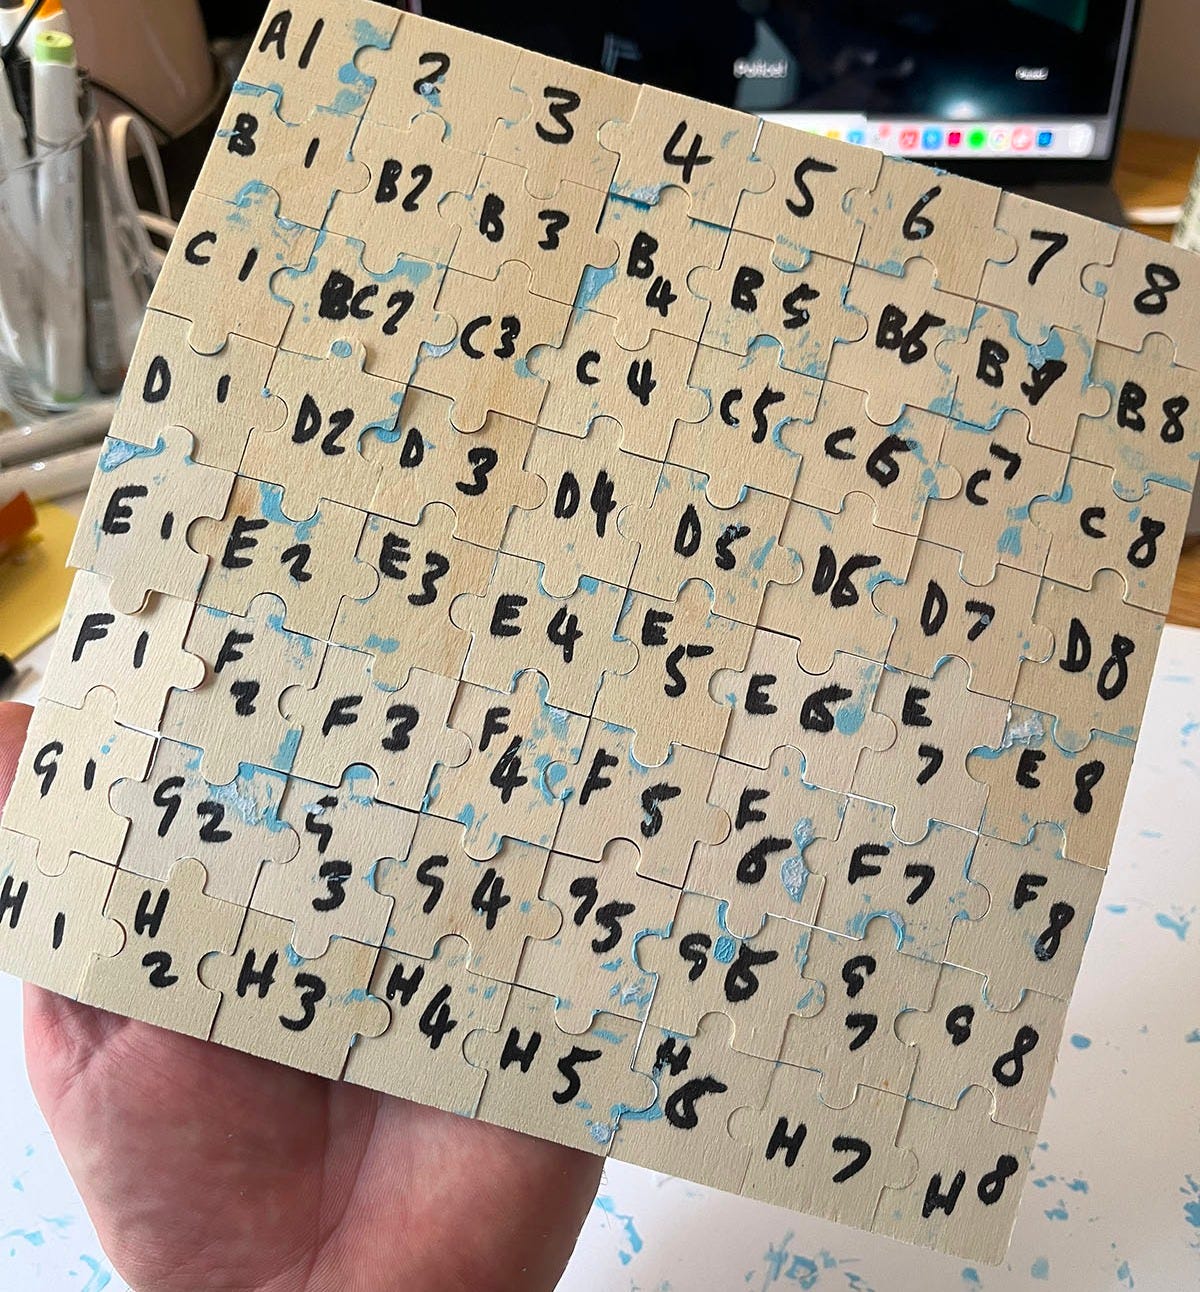 A1 2 3 4 5 6 7 8
B 1 B2 B 3 B4 B 5 B6 B B8
C 1 C2 C3 C 4 C5 C 6 C7 C 8
D 1 D2 D 3 D4 D5 D6 D7 D8
E 1 E 2 E3 E 4 E 5 E 6 E 7 E 8
F 1 F 2 F 3 F 4 F 5 F 6 F 7 F 8
G 1 G2 G 3 G 4 G5 G6 G 7 G 8
H 1 H 2 H3 H4 H5 H6 H 7 H8